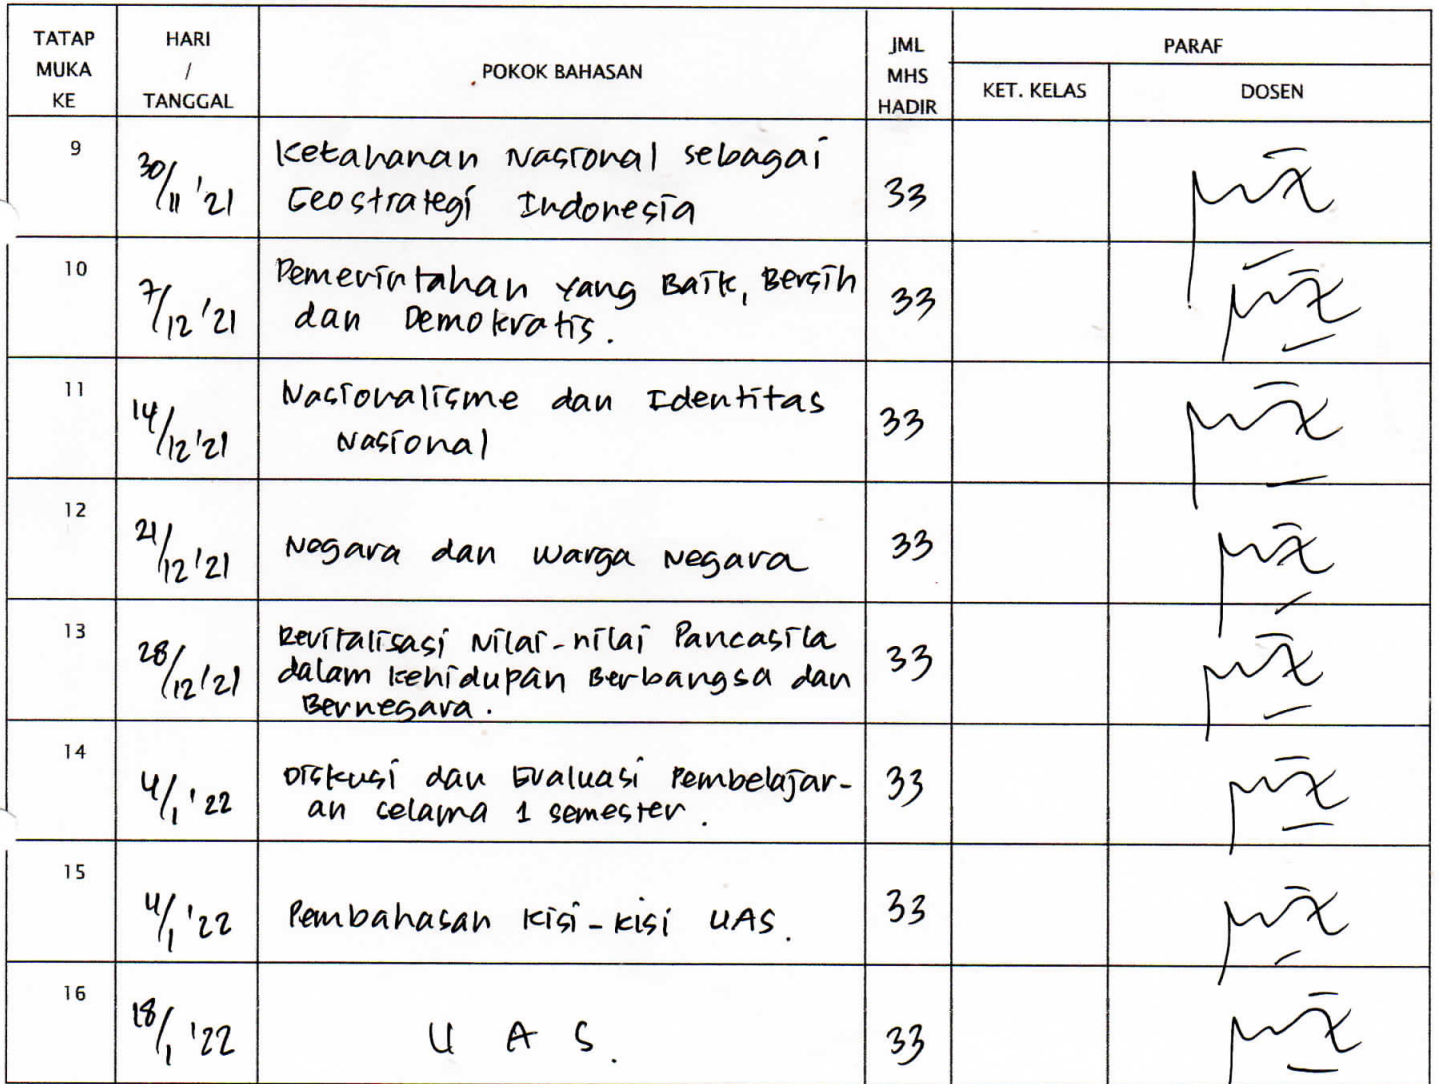 TATAP MUKA KE
HARI / TANGGAL
POKOK BAHASAN
JML MHS HADIR
PARAF
KET. KELAS
DOSEN
9
30/11 '21
Ketahanan Nasional sebagai
Geostrategi Indonesia
33
10
7/12 '21
Pemerintahan Yang Baik, Bersih
dan Demokratis.
33
11
14/12 '21
Nasionalisme dan Identitas
Nasional
33
12
21/12 '21
Negara dan Warga Negara
33
13
28/12 '21
Revitalisasi Nilai-nilai Pancasila
dalam Kehidupan Berbangsa dan
Bernegara.
33
14
4/1 '22
Diskusi dan Evaluasi Pembelajar-
an selama 1 semester.
33
15
4/1 '22
Pembahasan Kisi-kisi UAS.
33
16
18/1 '22
U A S.
33